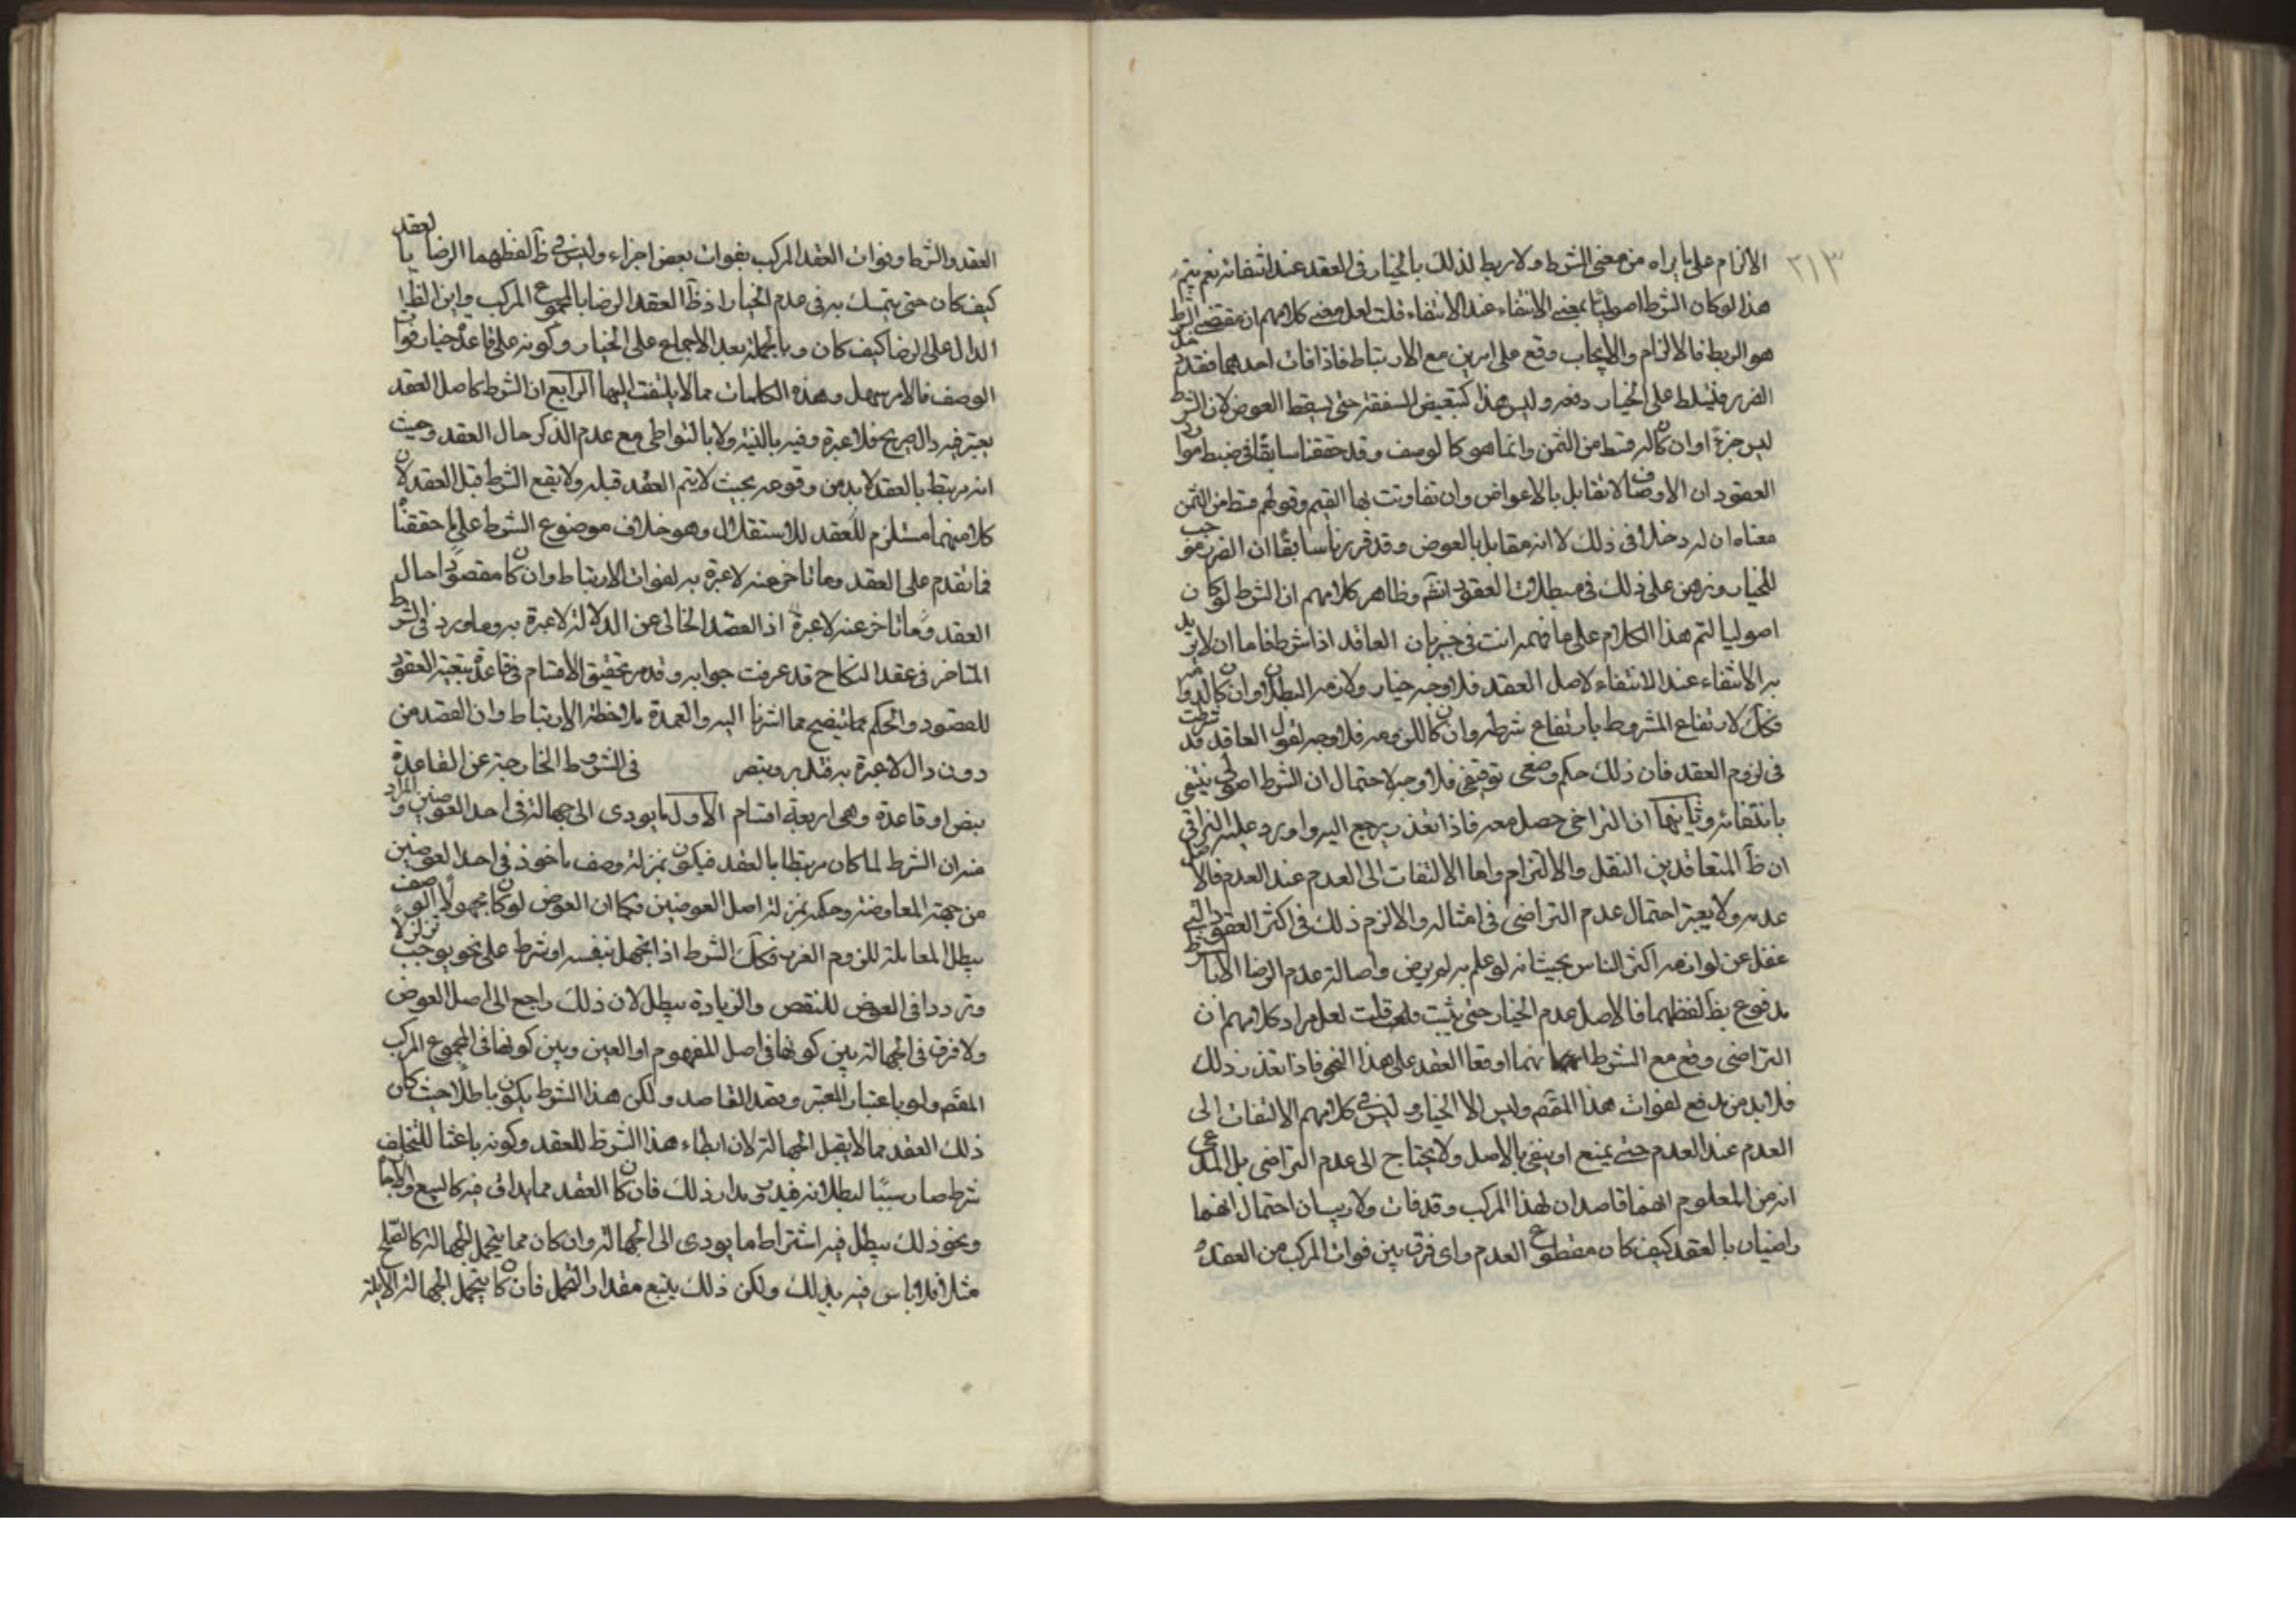 ٢١٣
الالزام على ما يراه من معنى الشرط ولا ربط لذلك بالخيار فى العقد عند انتفائه نعم يتم
هذا لو كان الشرط اصوليا بمعنى الانتفاء عند الانتفاء قلت لعل معنى كلامهم ان مقتضى الشرط
هو الربط فالالزام والايجاب وقع على امرين مع الارتباط فاذا فات احدهما فقد حصل
الضرر فيتسلط على الخيار دفعه وليس هذا كتبعيض الصفقة حتى يسقط العوض لان الشرط
ليس جزءً اوان كان له قسط من الثمن وانما هو كالوصف وقد حققنا سابقًا فى ضبط موارد
العقود ان الاوصاف لا تقابل بالاعواض وان تفاوتت بها القيم وقولهم قسط من الثمن
معناه ان له دخلاً فى ذلك لا انه مقابل بالعوض وقد قررنا سابقًا ان الضرر موجب
للخيار ونبرهن على ذلك فى مبطلات العقود انشٓه وظاهر كلامهم ان الشرط لو كان
اصوليا لتم هذا الكلام على ما فهمه انت فى خبر بان العاقد اذا شرط فاما ان لا يريد
به الانتفاء عند الانتفاء لاصل العقد فلا وجه خيار ولازمه البطلان وان كان لدوامه
فكك لارتفاع المشروط بارتفاع شرطه وان كان للزومه فلا وجه لقول العاقد قد شرطت
فى لزوم العقد فان ذلك حكم وضعى توقيفى فلا وجه لاحتمال ان الشرط اصولى ينتفى
بانتفائه وثانيها ان التراخى حصل معه فاذا تعذر يرجع اليه واورد عليه النراقى
ان ظٓ المتعاقدين النقل والالتزام واما الالتفات الى العدم عند العدم فالاصل
عدمه ولا يعتبر احتمال عدم التراضى فى امثاله والا لزم ذلك فى اكثر العقود التى
غفل عن لوازمه اكثر الناس بحيث انه لو علم به لم يرض واصالة عدم الرضا الا بالشرط
مدفوع بظٓ لفظهما فالاصل عدم الخيار حتى يثبت قلت لعل مراد كلامهم ان
التراضى وقع مع الشرط انهما اوقعا العقد على هذا النحو فاذا تعذر ذلك
فلابد من مدفع لفوات هذا المقصم وليس الا الخيار وليس فى كلامهم الالتفات الى
العدم عند العدم حتى يمنع او ينفى بالاصل ولا يحتاج الى عدم التراضى بل المدعى
انه من المعلوم انهما قاصدان لهذا المركب وقد فات ولا ريب ان احتمال انهما
راضيان بالعقد كيف كان مقطوع العدم واى فرق بين فوات المركب من العقده
العقد والشرط وفوات العقد المركب بفوات بعض اجزاء وليس فى ظٓ لفظهما الرضا بالعقد
كيف كان حتى يتمسك به فى عدم الخيار اذ ظٓ العقد الرضا بالمجموع المركب واين الظٓا
الدال على الرضا كيف كان وبالجملة بعد الاجماع على الخيار وكونه على قاعدة خيار فوات
الوصف فالامر سهل وهذه الكلمات مما لا يلتفت اليها الرابع ان الشرط كاصل العقد
يعتبر فيه دال صريح فلا عبرة وفيه بالنية ولا بالتواطى مع عدم الذكر حال العقد وحيث
انه مرتبط بالعقد لابد من وقوعه بحيث لا يتم العقد قبله ولا يقع الشرط قبل العقد لان
كلا منهما مستلزم للعقد للاستقلال وهو خلاف موضوع الشرط على ما حققناه
فما تقدم على العقد وما تاخر عنه لا عبرة به لفوات الارتباط وان كان مقصودًا حال
العقد وما تاخر عنه لا عبرة اذ العقد الخالى عن الدلالة لا عبرة به وما ورد فى الشرط
المتاخر فى عقد النكاح قد عرفت جوابه وقد مر تحقيق الاقسام فى قاعدة تبعية العقود
للقصود والحكم مما يتضح مما اشرنا اليه والعمدة ملاحظة الارتباط وان القصد من
دون دال لا عبرة به فتدبر وتبصر فى الشروط الخارجة عن القاعدة
بنص او قاعدة وهى اربعة اقسام الاول ما يودى الى جهالة فى احد العوضين والمراد
منه ان الشرط لما كان مرتبطا بالعقد فيكون بمنزلة وصف ماخوذ فى احد العوضين
من جهة المعاوضة وحكمه بمنزلة اصل العوضين فكما ان العوض لو كان مجهولا الوصف
يبطل المعاملة للزوم الغرر فكك الشرط اذا جهل بنفسه او شرط على نحو يوجب تزلزلاً
وترددا فى العوض للنقص والزيادة يبطل لان ذلك راجع الى اصل العوض
ولا فرق فى الجهالة بين كونها فى اصل المفهوم او العين وبين كونها فى المجموع المركب
المقصم ولو باعتبار المعتبر وبعد القاصد ولكن هذا الشرط يكون باطلا حيث كان
ذلك العقد مما لا يقبل الجهالة لان ابطاء هذا الشرط للعقد وكونه باعثا للتخلف
شرط صار سببًا لبطلانه فيدور مدار ذلك فان كان العقد مما يداق فيه كالبيع والاجارة
ونحو ذلك يبطل فيه اشتراط ما يودى الى الجهالة وان كان مما يتحمل الجهالة كالصلح
مثلا فلا باس فيه بذلك ولكن ذلك يتبع مقدار التحمل فان كان يتحمل الجهالة الايلة